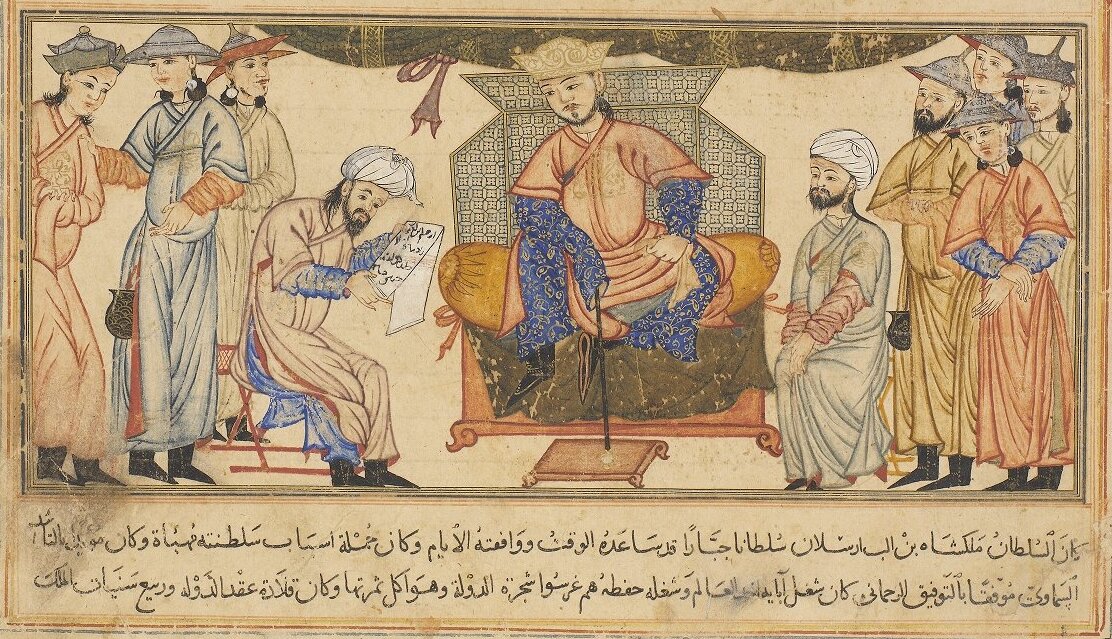 كان السلطان ملكشاه بن الب ارسلان سلطانا جبارا قد ساعده الوقت ووافقته الايام وكان جملة اسباب سلطنته مهياة وكان
السماوى موفقا بالتوفيق الرحمانى كان شغل آبايه العالم وشغله حفظه هم غرسوا شجرة الدولة وهو اكل ثمرتها وكان قلادة عقد الدولة وربيع الملك